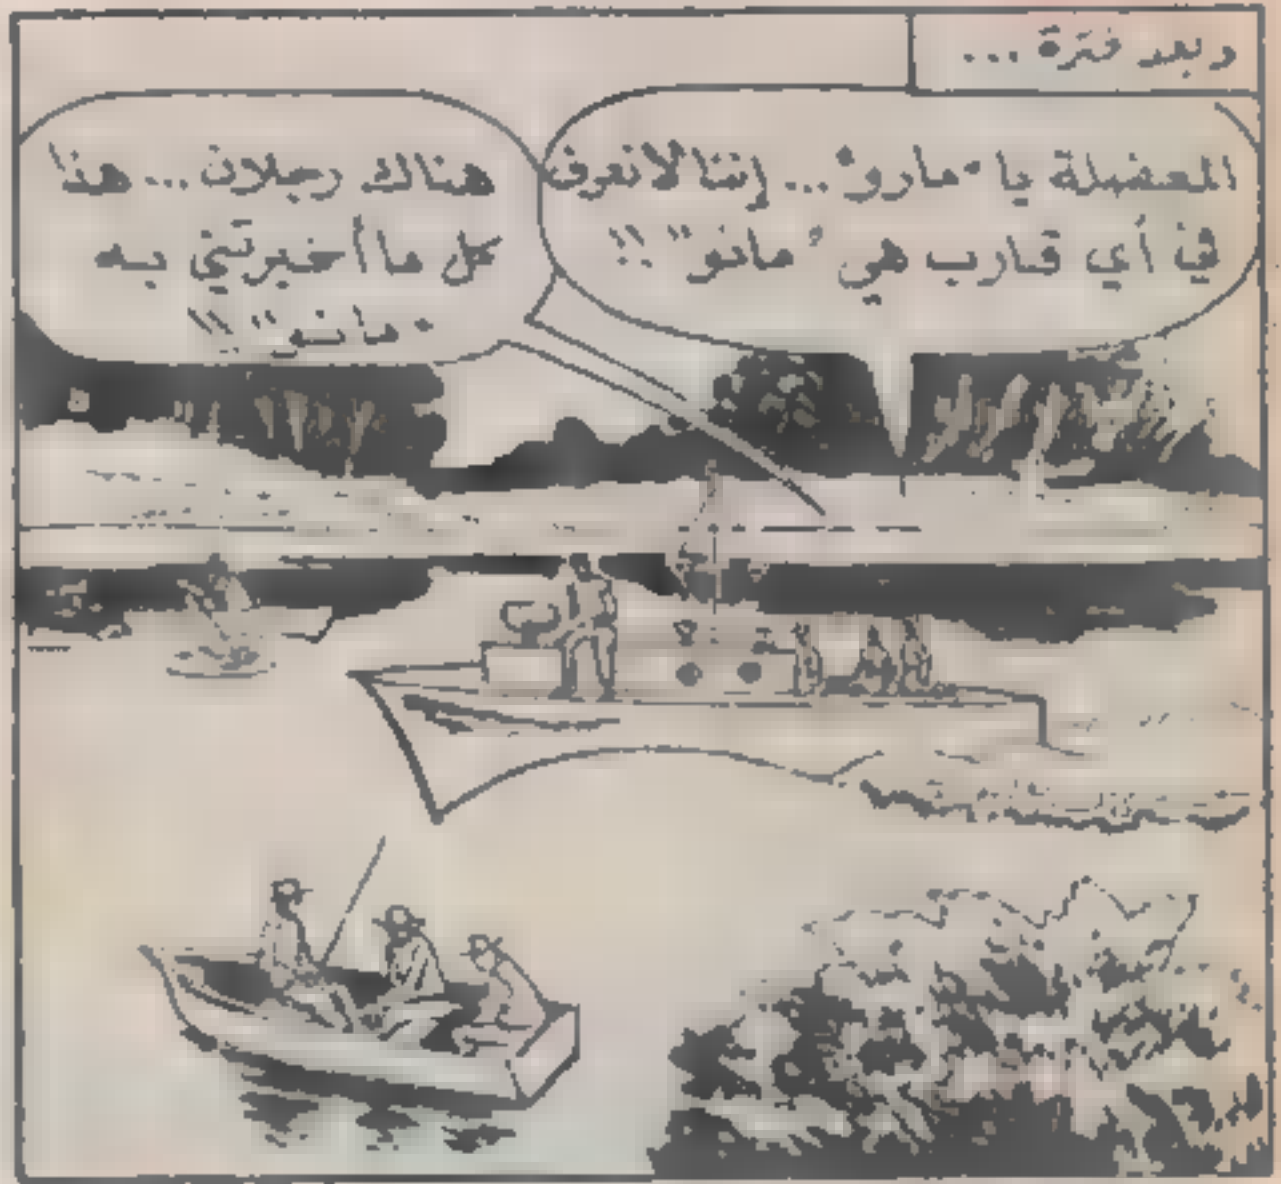 وبعد فترة...
المعضلة يا "مارو"... إننا لا نعرف
في أي قارب هي "مانو" !!
هناك رجلان... هذا
كل ما أخبرتني به
"مانو" !!